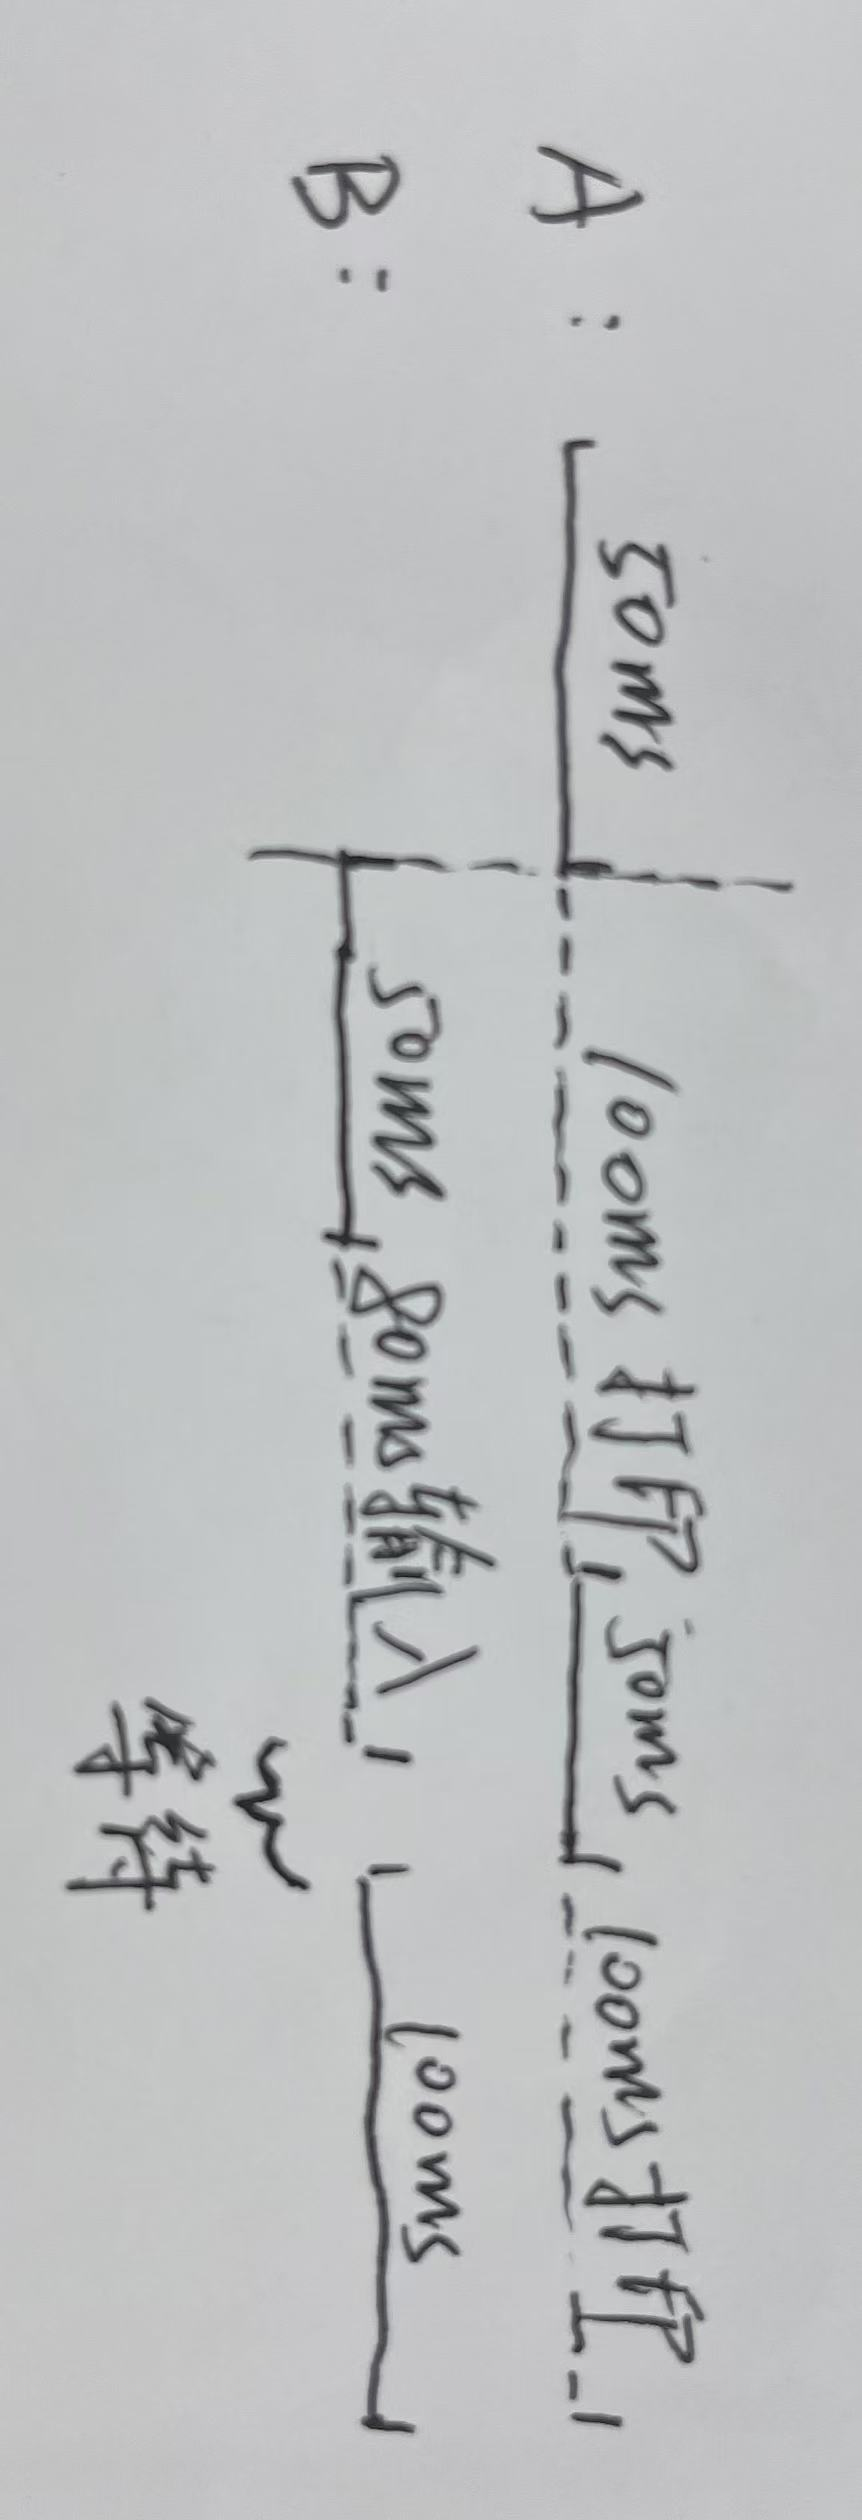 A： 50ms 100ms打印 50ms 100ms打印
B： 50ms 80ms输入 100ms
等待